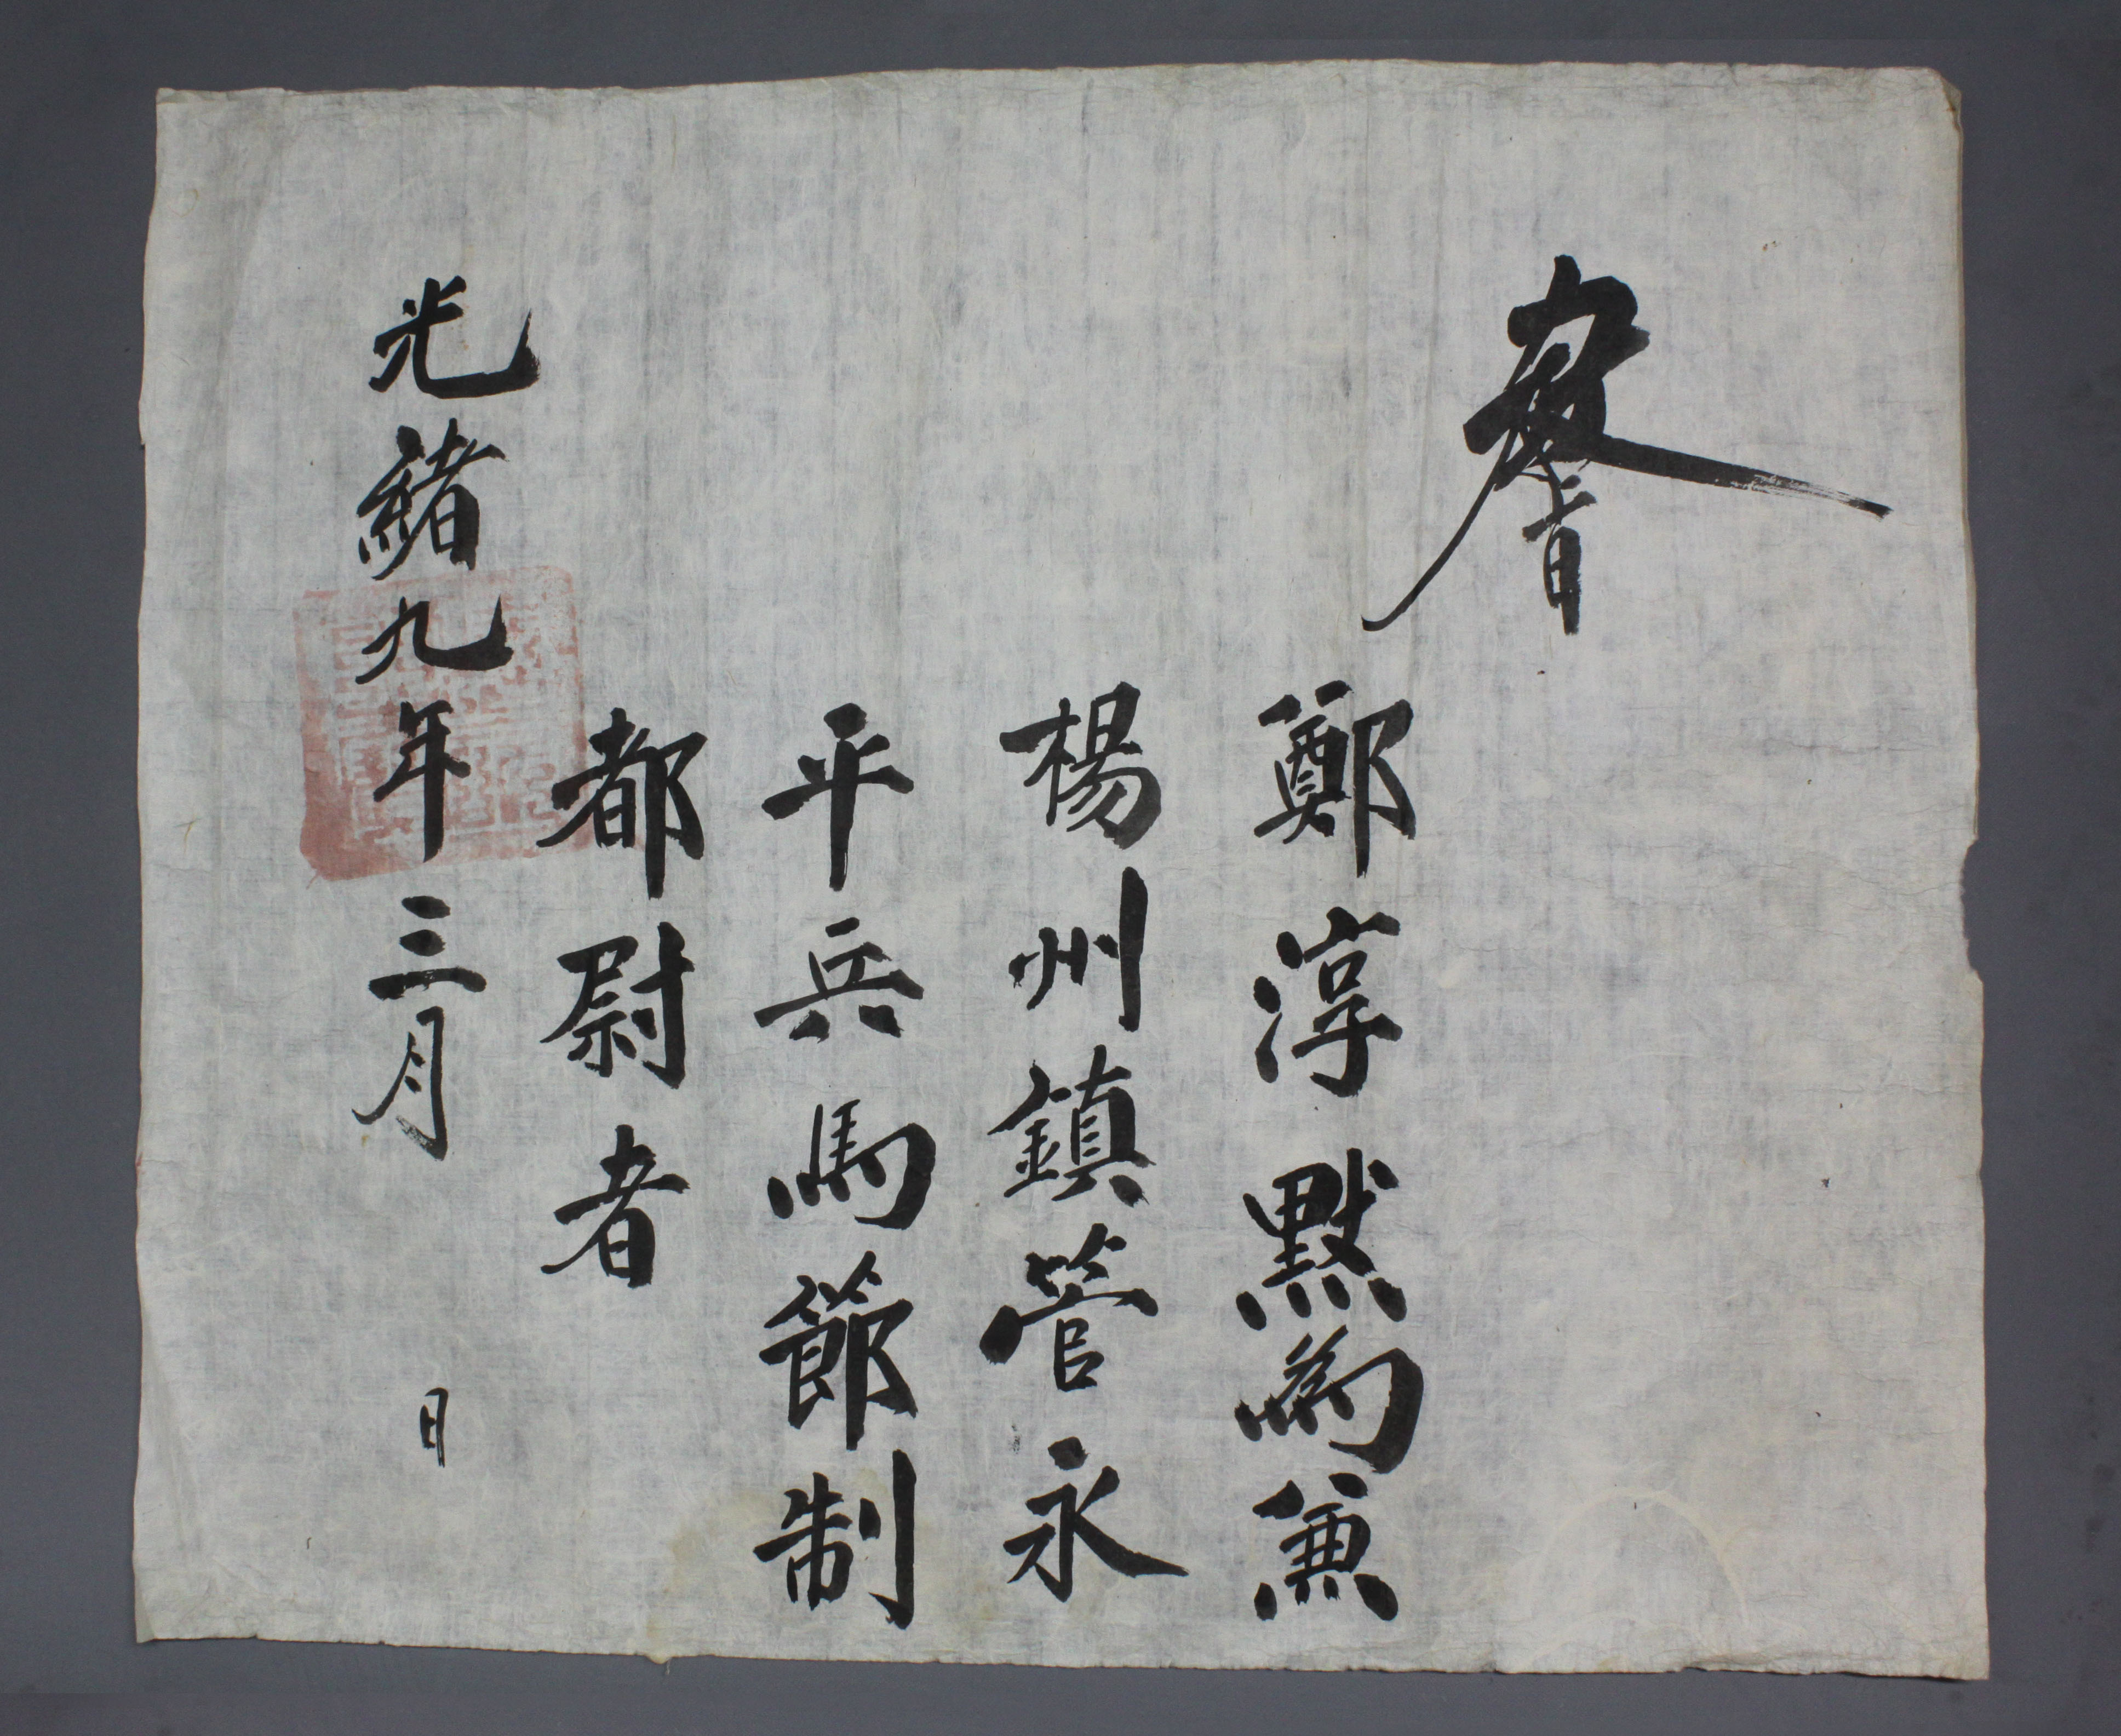 敎旨
鄭淳默爲兼
楊州鎮管永
平兵馬節制
都尉者
光緒九年三月 日